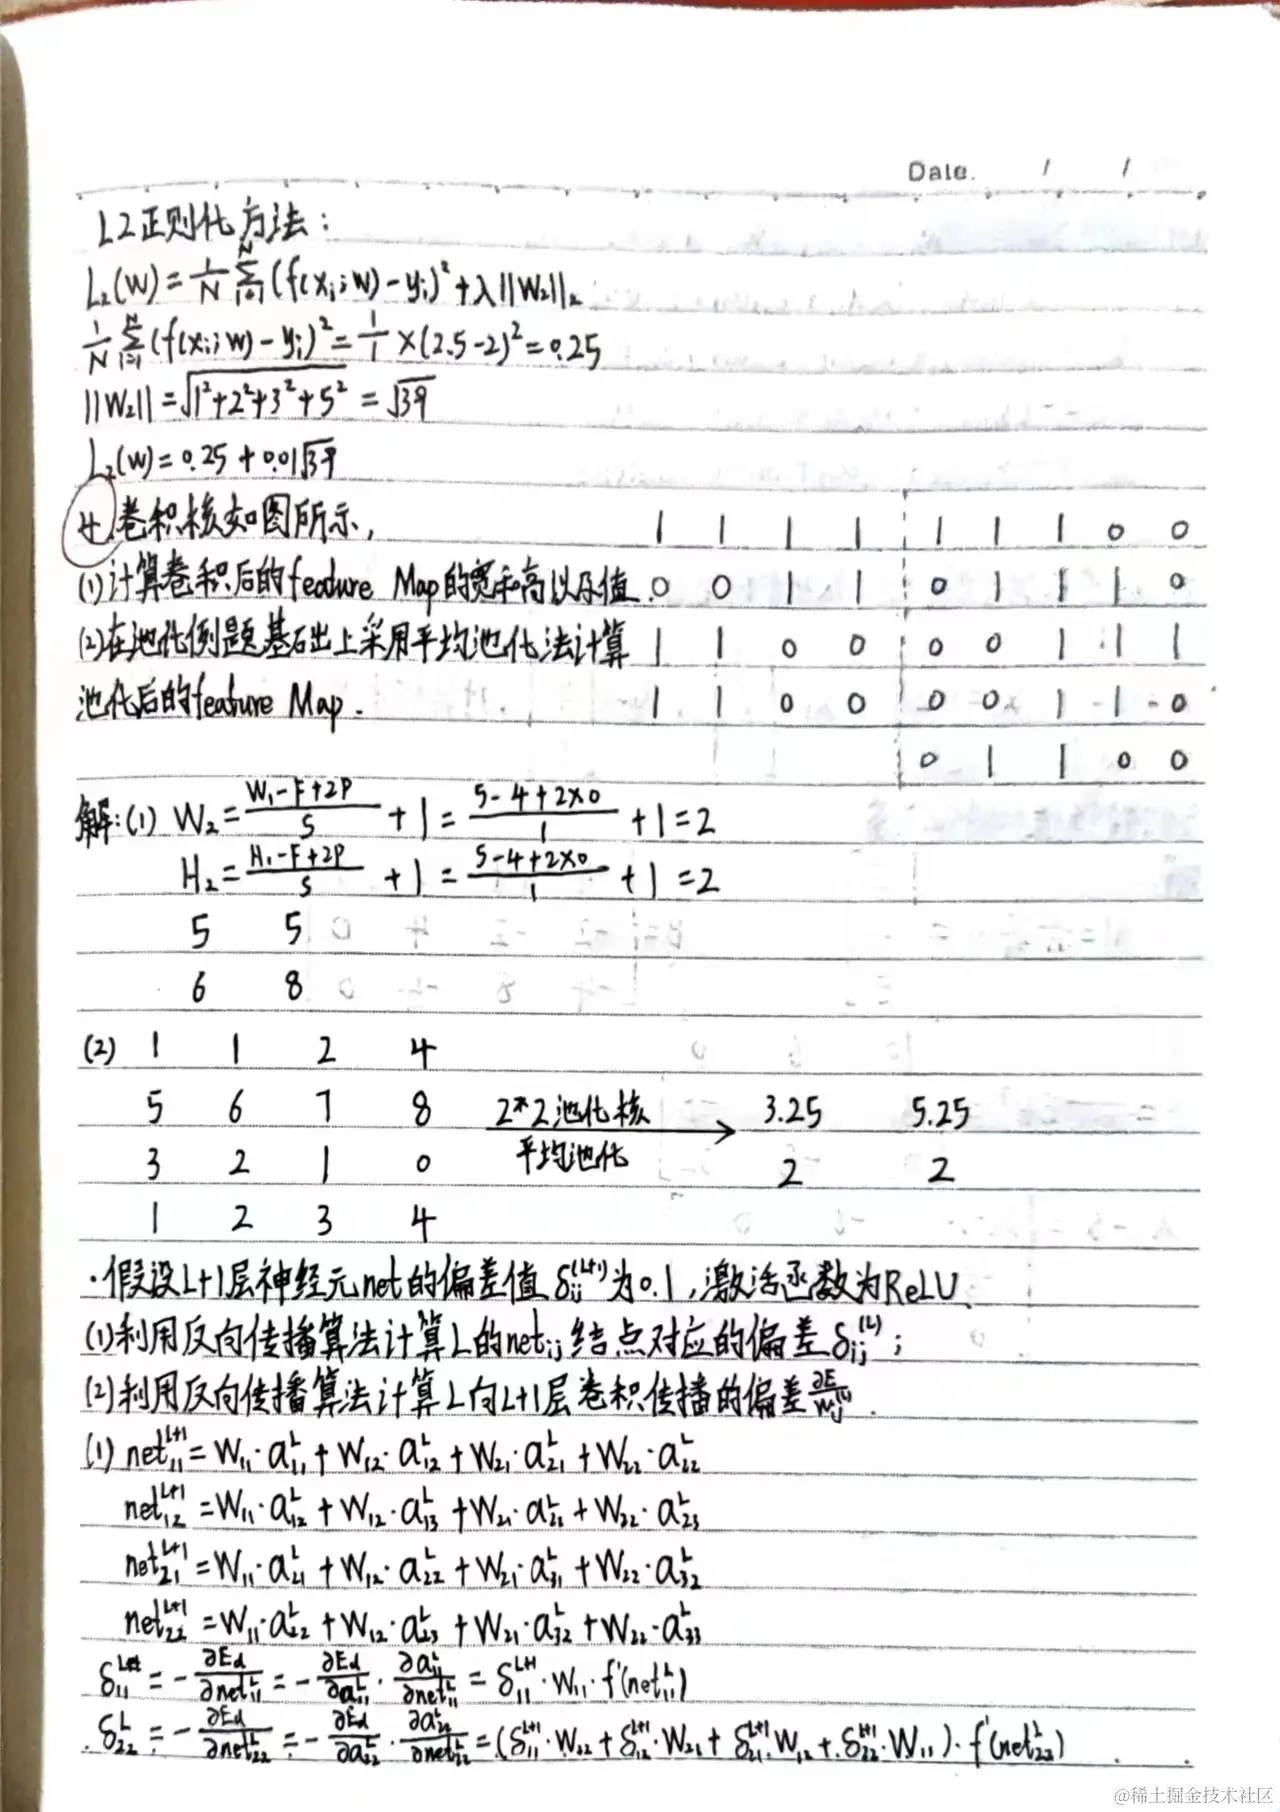 Date. / /
L2正则化方法:
L₂(w) = 1/N Σᵢ₌₁ᴺ (f(xᵢ;w) - yᵢ)² + λ||W₂||₂
1/N Σᵢ₌₁ᴺ (f(xᵢ;w) - yᵢ)² = 1/1 × (2.5-2)² = 0.25
||W₂|| = √(1²+2²+3²+5²) = √39
L₂(w) = 0.25 + 0.01√39
4. 卷积核如图所示, 1 1 1 1 1 1 1 0 0
(1)计算卷积后的feature Map的宽和高以及值. 0 0 1 1 0 1 1 1 0
(2)在池化例题基础上采用平均池化法计算 1 1 0 0 0 0 1 1 1
池化后的feature Map. 1 1 0 0 0 0 1 1 0
0 1 1 0 0
解:(1) W₂ = (W₁-F+2P)/S + 1 = (5-4+2×0)/1 + 1 = 2
H₂ = (H₁-F+2P)/S + 1 = (5-4+2×0)/1 + 1 = 2
5 5
6 8
(2) 1 1 2 4
5 6 7 8 2*2池化核 3.25 5.25
3 2 1 0 平均池化 2 2
1 2 3 4
·假设L+1层神经元net的偏差值 δᵢⱼ^(L+1)为0.1,激活函数为ReLU、
(1)利用反向传播算法计算L的netᵢⱼ结点对应的偏差δᵢⱼ^(L);
(2)利用反向传播算法计算L向L+1层卷积传播的偏差
(1) net₁₁^L+1 = W₁₁·a₁₁^L + W₁₂·a₁₂^L + W₂₁·a₂₁^L + W₂₂·a₂₂^L
net₁₂^L+1 = W₁₁·a₁₂^L + W₁₂·a₁₃^L + W₂₁·a₂₂^L + W₂₂·a₂₃^L
net₂₁^L+1 = W₁₁·a₂₁^L + W₁₂·a₂₂^L + W₂₁·a₃₁^L + W₂₂·a₃₂^L
net₂₂^L+1 = W₁₁·a₂₂^L + W₁₂·a₂₃^L + W₂₁·a₃₂^L + W₂₂·a₃₃^L
δ₁₁ = -∂Ed/∂net₁₁^L = -∂Ed/∂a₁₁^L · ∂a₁₁^L/∂net₁₁^L = δ₁₁^L+1·W₁₁·f'(net₁₁^L)
δ₂₂^L = -∂Ed/∂net₂₂^L = -∂Ed/∂a₂₂^L · ∂a₂₂^L/∂net₂₂^L = (δ₁₁^L+1·W₂₂ + δ₁₂^L+1·W₂₁ + δ₂₁^L+1·W₁₂ + δ₂₂^L+1·W₁₁)·f'(net₂₂^L)
@稀土掘金技术社区